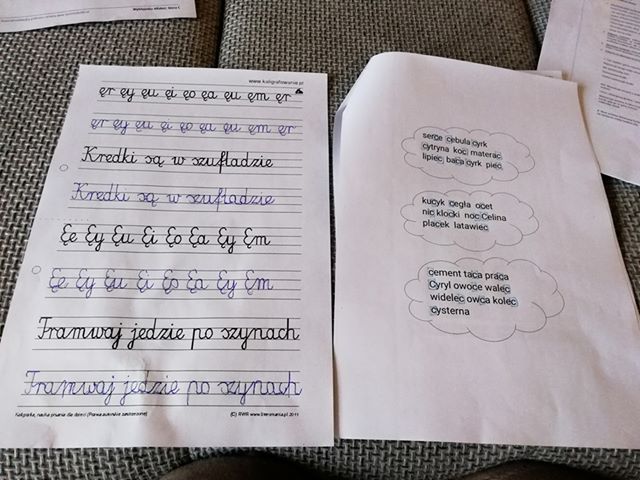 www.kaligrafowanie.pl
ęr ęy ęu ęi ęo ęa ęu ęm ęr
ęr ęy ęu ęi ęo ęa ęu ęm ęr
Kredki są w szufladzie
Kredki są w szufladzie
Ęe Ęy Ęu Ęi Ęo Ęa Ęy Ęm
Ęe Ęy Ęu Ęi Ęo Ęa Ęy Ęm
Tramwaj jedzie po szynach
Tramwaj jedzie po szynach
Kaligrafia, nauka pisania dla dzieci (Prawa autorskie zastrzeżone)
(C) RWR www.literomania.pl 2011
serce cebula cyrk
cytryna koc materac
lipiec baca cyrk piec
kucyk cegła ocet
nic klocki noc Celina
placek latawiec
cement taca praca
Cyryl owoce walec
widelec owca kolec
cysterna